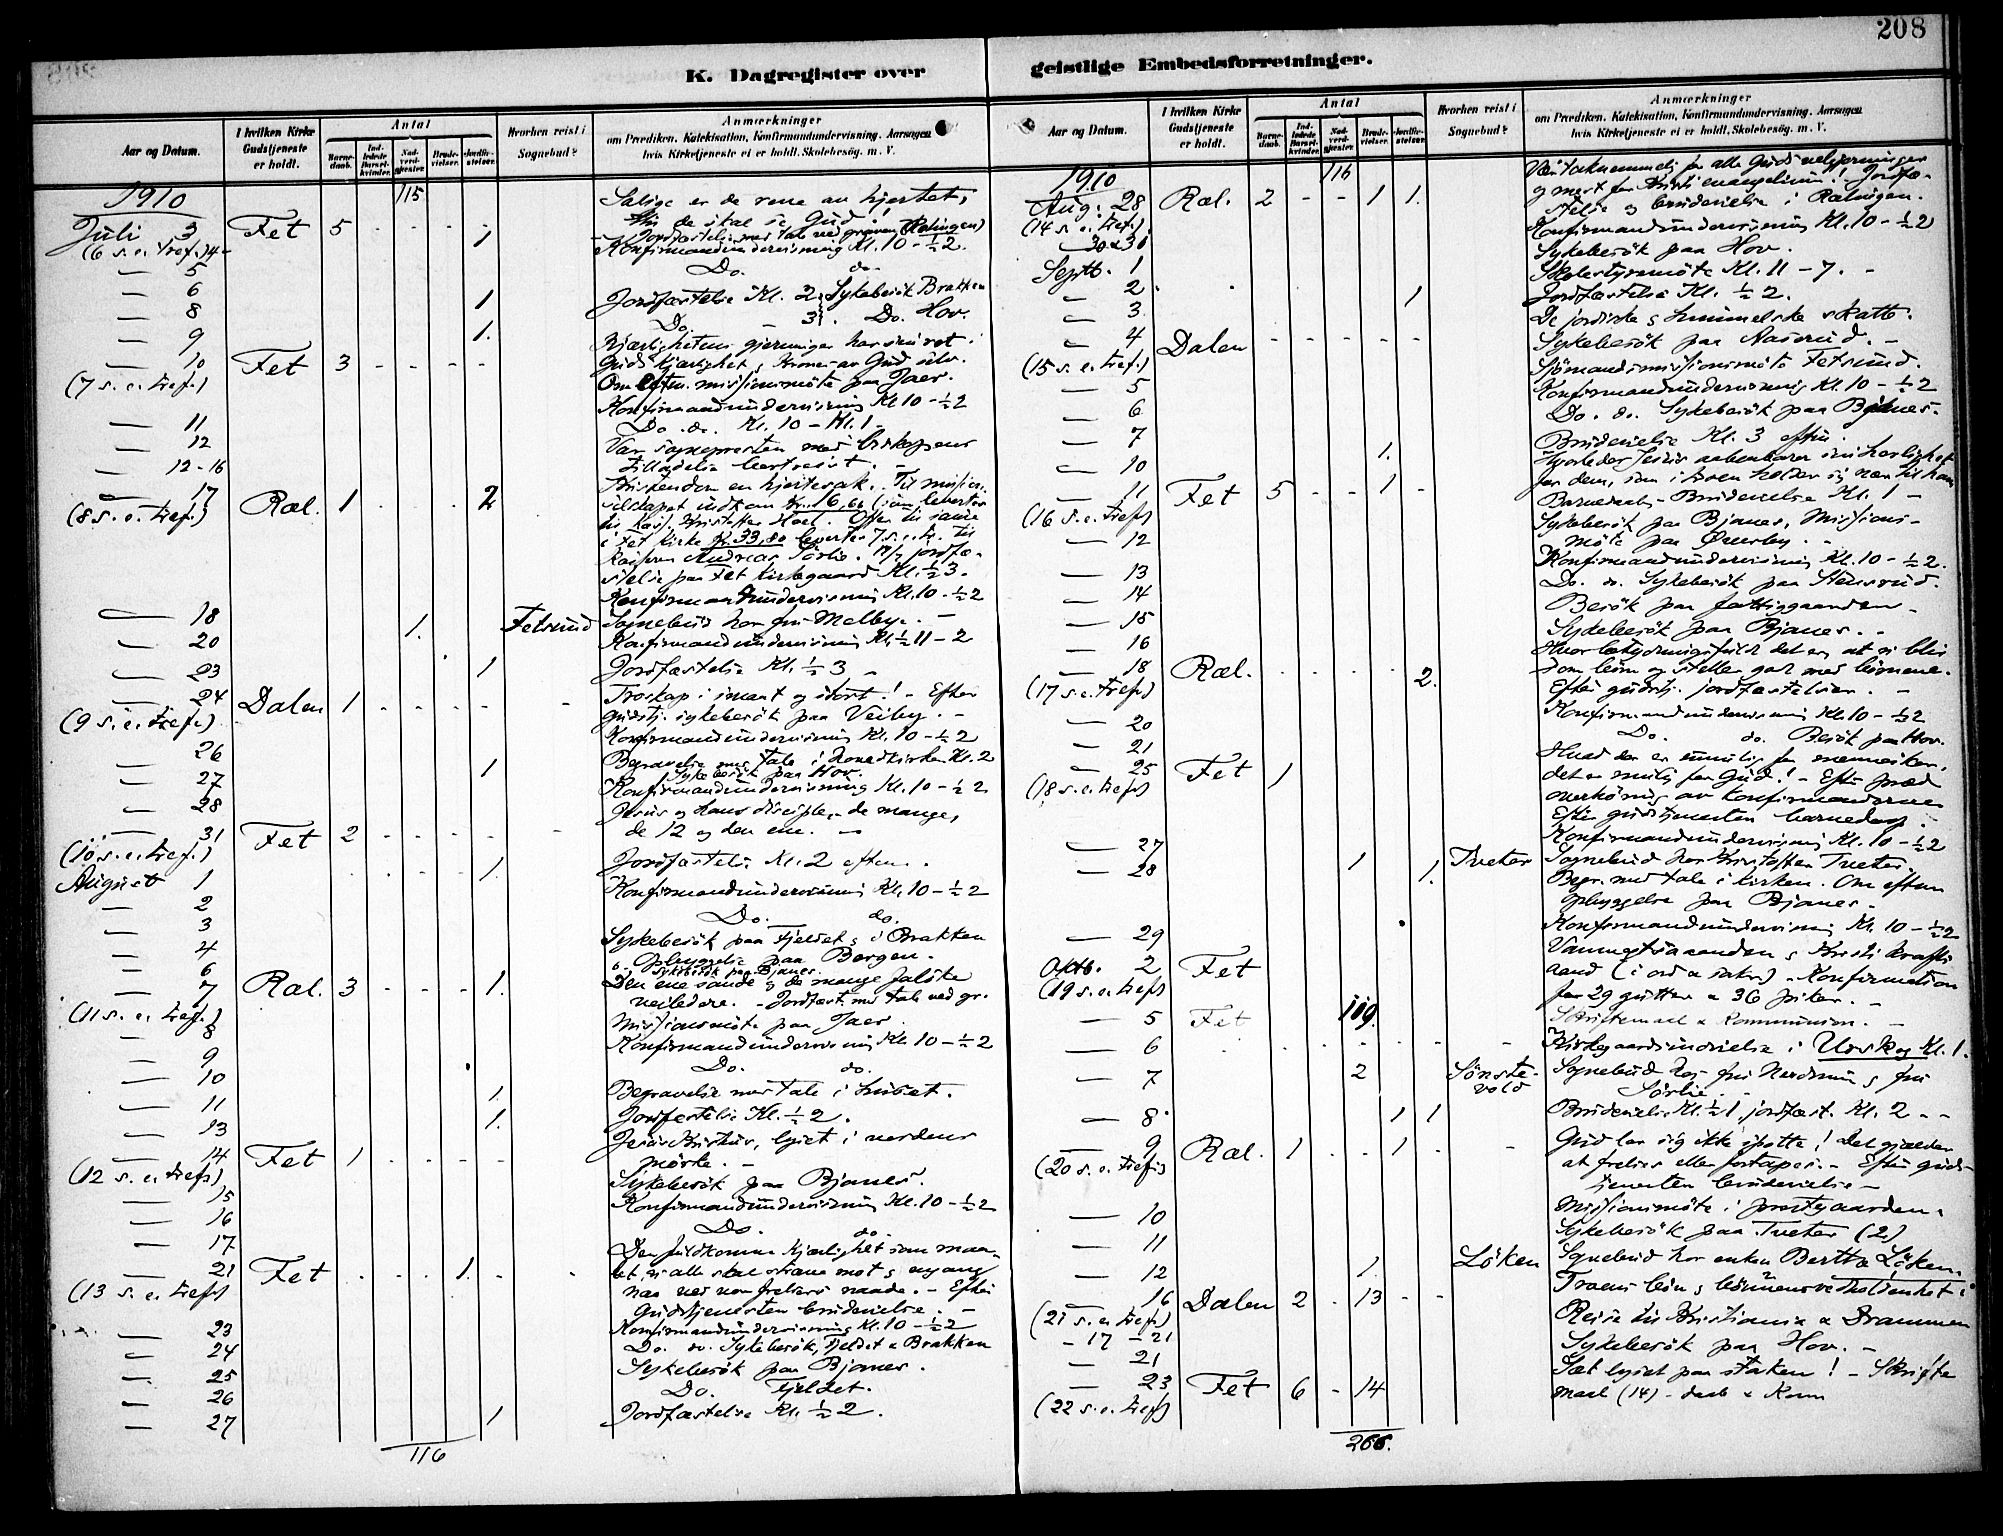 208
K. Dagregister over
Aar og Datum.
I hvilken Kirke Gudstjeneste er holdt.
Antal
Barnedaab.
Indledede Barselkvinder.
Nadverdgjester.
Brudevielser.
Jordfæstelser.
Hvorhen reist i Sognebud?
Anmærkninger
om Prædiken, Katekisation, Konfirmandundervisning, Aarsagen
hvis Kirketjeneste ei er holdt, Skolebesøg. m. V.
1910 115 Salige er de rene av hjertet,
Juli 3 Fet 5 - - - - de skal se Gud!
(6 s. e. tref.) 4 1 Jordfæstelse med tale ved graven (Rælingen)
Konfirmandundervisning Kl. 10 - ½2.
— 5 Do. do.
— 6 1 Jordfæstelse Kl. 2. Sykebesök Brakken
— 8 Do. - 3. Do. Hov.
— 9 1. Kjærlighetens gjerninger
— 10 Fet 3 - - - - Guds kjærlighet,
(7 s. e. tref.) Om eftm. missionsmöte paa Jaer.
Konfirmandundervisning Kl 10 - ½2
— 11 Do. do. Kl. 10 - Kl. 1 -
— 12 Var sognepresten med biskopens
— 12-16 tilladelse bortreist. -
— 17 Ræl. 1 . . . 2 Kristendom en hjertesak. Til mission.
(8 s. e. tref.) selskapet indkom Kr. 16,60 som leveres
til kass. Kristoffer Hoel. Offer til samme
i Fet kirke Kr. 33,80 leveret 7. s. e. tr. til
kasserer Andreas Sörlie. 17/7 jordfæ-
stelse paa Fet kirkegaard Kl. ½3.
Konfirmandundervisning Kl. 10 - ½2
— 18 1. Fetsund Sognebud hos fru Melbye. -
— 20 Konfirmandundervisning Kl. ½11 - 2
— 23 1 Jordfæstelse Kl. ½3 -
— 24 Dalen 1 - - - - - Troskap i smaat og stort! - Efter
(9 s. e. tref.) gudstj. sykebesök paa Veiby. -
Konfirmandundervisning Kl. 10 - ½2
— 26 Begravelse med tale i hovedkirken Kl. 2
— 27 1 Sykebesök paa Hov.
— 28 Konfirmandundervisning Kl. 10 - ½2
Jesus og hans disciple, - de mange,
— 31 Fet 2 - - - - - de 12 og den ene. -
(10 s. e. tref.) Jordfæstelse Kl. 2 eftm.
August 1 1. Konfirmandundervisning Kl. 10 - ½2
— 2 Do. do.
— 3 Sykebesök paa Fjeldet, i Brakken
— 4 Opbyggelse paa Bergen.
— 6 Sykebesök paa Bjanes.
— 7 Ræl. 3 - - - 1. Den ene sande og de mange falske
(11 s. e. tref.) veiledere. - Jordfæst. med tale ved gr.
8 Missionsmöte paa Jaer.
— 9 Konfirmandundervisning Kl. 10 - ½2
— 10 Do. do.
— 11 1. Begravelse med tale i huset.
— 13 1. Jordfæstelse Kl. ½2.
— 14 Fet 1 - - - - Jesus Kristus, lyset i verdens
(12 s. e. tref.) mörke. -
— 15 Sykebesök paa Bjanes.
— 16 Konfirmandundervisning Kl. 10 - ½2
— 17 Do. do.
— 21 Fet . . . 1. - Den fuldkomne kjærlighet som maa-
(13 s. e. tref.) let, vi alle skal stræve mot
naa ved vor frelsers naade. - Efter
Gudstjenesten brudevielse. -
— 23 Konfirmandundervisning Kl. 10 - ½2
— 24 Do. do. Sykebesök, Fjeldet & Brakken
— 25 Sykebesök paa Bjanes.
— 26 Do. Fjeldet.
— 27 1 Jordfæstelse Kl. ½2.
116
geistlige Embedsforretninger.
Aar og Datum.
I hvilken Kirke Gudstjeneste er holdt.
Antal
Barnedaab.
Indledede Barselkvinder.
Nadverdgjester.
Brudevielser.
Jordfæstelser.
Hvorhen reist i Sognebud?
Anmærkninger
om Prædiken, Katekisation, Konfirmandundervisning, Aarsagen
hvis Kirketjeneste ei er holdt, Skolebesög. m. V.
1910 116 Vær taknemmelig for alle Guds velgjerninger
Aug. 28 Ræl. 2 - - 1 1. og mest for Kristi evangelium! Jordfæ-
(14 s. e. tref.) stelse og brudevielse i Rælingen.
— 30 & 31 Konfirmandundervisning Kl. 10 - ½2
Septb. 1 Sykebesök paa Hov.
— 2 Skolestyremöte Kl. 11 - 7. -
— 3 1 Jordfæstelse Kl. ½2.
— 4 Dalen - - - - - De jordiske & himmelske skatte.
(15 s. e. tref.) Sykebesök paa Aaserud. -
Sjömandsmissionsmöte Fetsund.
— 5 Konfirmandundervisning Kl. 10 - ½2
— 6 Do. do. Sykebesök paa Bjanes.
— 7 Brudevielse Kl. 3 eftm.
— 10 1. Hvorledes Jesus aabenbarer sin herlighet
— 11 Fet 5 - - 1 - for dem, som i troen holder sig nær til ham
(16 s. e. tref.) Barnedaab - Brudevielse Kl. 1 -
Sykebesök paa Bjanes, Missions-
— 12 möte paa Öuerby. -
— 13 Konfirmandundervisning Kl. 10 - ½2.
— 14 Do. do. Sykebesök paa Stensrud.
Besök paa fattiggaarden -
— 15 Sykebesök paa Bjanes. -
— 16 Hvor betydningsfuldt det er, at vi blir
— 18 Ræl. . . . . 2. som börn og steller godt med börnene.
(17 s. e. tref.) Efter gudstj. jordfæstelser. -
— 20 Konfirmandundervisning Kl. 10 - ½2
— 21 Do. do. Besök paa Hov.
— 25 Fet 1 Hvad der er umulig for mennesker,
(18 s. e. tref.) det er mulig for Gud! - Efter præd
overhöring av konfirmanderne
Efter gudstjenesten barnedaap.
— 27 Konfirmandundervisning Kl. 10 - ½2
— 28 1 1. Tueter Sognebud hos Kristoffer Tueter.
Begr. med tale i kirken. Om eftm
opbyggelse paa Bjanes.
— 29 Konfirmandundervisning Kl. 10 - ½2
Oktb. 2 Fet Vanmagtsaanden & Kristi krafts
(19 s. e. tref.) aand (i ord & sakr.) - Konfirmation
for 29 gutter & 36 piker. -
— 5 Fet 109. Skriftemaal & Kommunion. -
— 6 Kirkegaardsindvielse i Urskog Kl. 1.
— 7 2 Sönstevold Sognebud hos fru Nerdrum & fru
Sörlie. -
— 8 1 1 Brudevielse Kl. ½1, jordfæst. Kl. 2 - -
— 9 Ræl. 1 . . 1 - - Gud lar sig ikke spotte! Det gjælder
(20 s. e. tref.) at frelses eller fortapes. - Efter guds-
tjenesten brudevielse -
— 10 Missionsmöte i prestegaarden.
— 11 Sykebesök paa Tueter (2)
— 12 1. Löken Sognebud hos enken Berthe Löken.
— 16 Dalen 2 - 13 - - Troens bön & bönnens vedholdenhet
(21 s. e. tref.)
- 17 - 21 Reise til Kristiania & Drammen
— 21 Sykebesök paa Hov. -
— 23 Fet 6 - 14 Sæt lyset paa staken! - Skrifte
(22 s. e. tref.) maal (14) - daab & Kom
266.